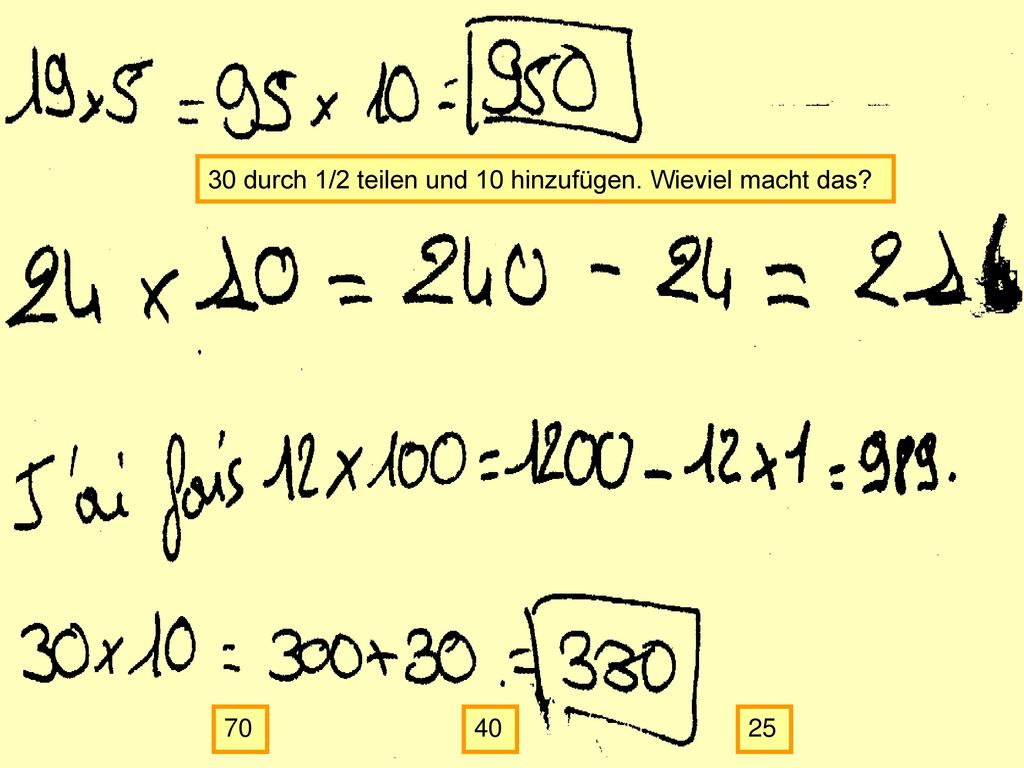 19 x 5 = 95 x 10 = 950
30 durch 1/2 teilen und 10 hinzufügen. Wieviel macht das?
24 x 10 = 240 - 24 = 216
J'ai fais 12 x 100 = 1200 - 12 x 1 = 989.
30 x 10 = 300 + 30 = 330
70 40 25